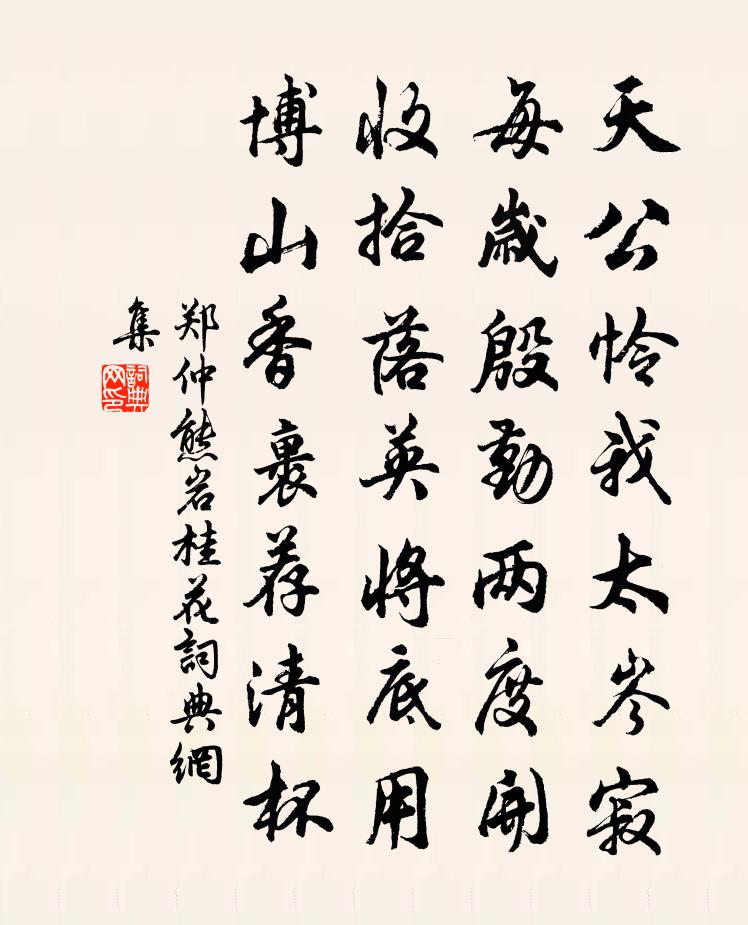 天公怜我太岑寂
每歲殷勤两度開
收拾落英將底用
博山香裹荐清杯
郑仲熊岩桂花詞典網
集
詞典
网印